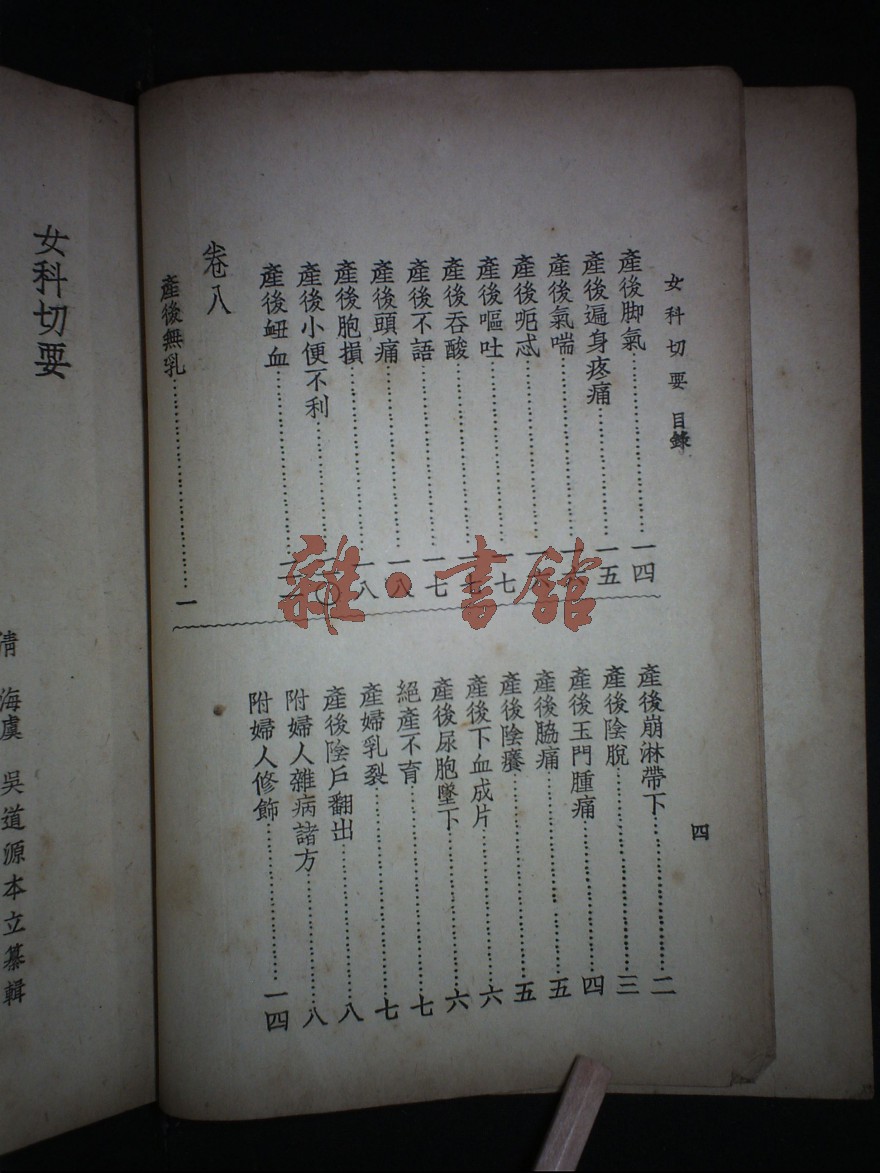 女科切要 目錄
四
產後脚氣 一四
產後遍身疼痛 一五
產後氣喘
產後呃忒
產後嘔吐 一七
產後吞酸 一七
產後不語 一七
產後頭痛 一八
產後胞損 一八
產後小便不利
產後衄血
卷八
產後無乳 一
產後崩淋帶下 二
產後陰脫 三
產後玉門腫痛 四
產後脇痛 五
產後陰癢 五
產後下血成片 六
產後尿胞墜下 六
絕產不育 七
產婦乳裂 七
產後陰戶翻出 八
附婦人雜病諸方 八
附婦人修飾 一四
女科切要
清 海虞 吳道源本立纂輯
雜·書館